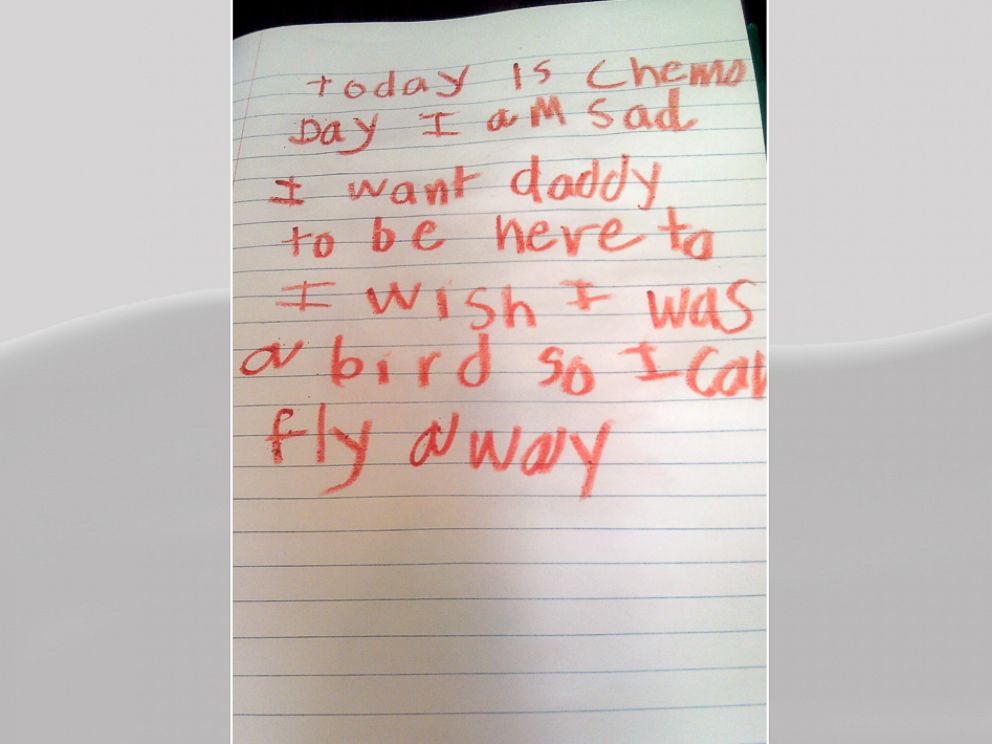 today is Chemo
Day I aM Sad
I want daddy
to be here to
I wish I was
a bird so I can
fly away